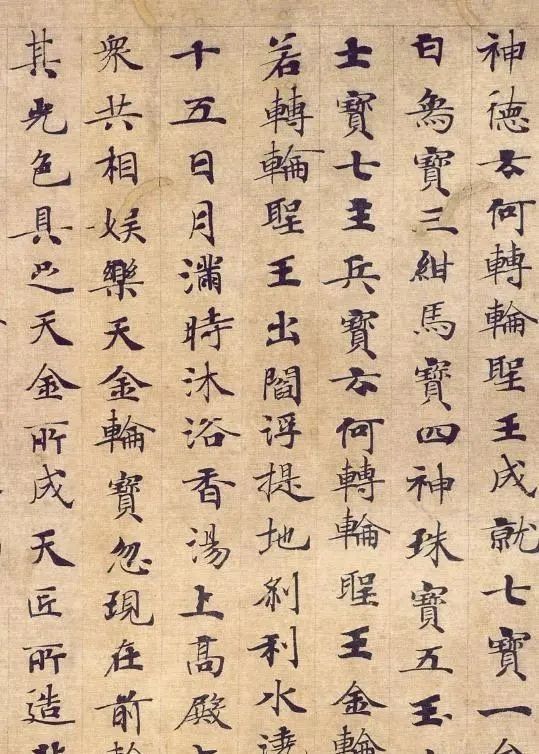 神德云何轉輪聖王成就七寶一金
白象寶三紺馬寶四神珠寶五玉
士寶七主兵寶云何轉輪聖王金輪
若轉輪聖王出閻浮提地刹利水澆
十五日月滿時沐浴香湯上髙殿上
衆共相娛樂天金輪寶忽現在前輪
其光色具足天金所成天匠所造